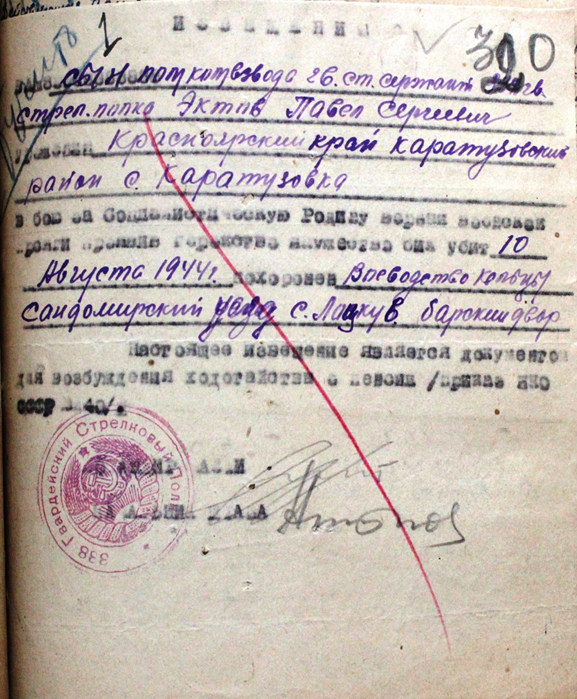 ИЗВЕЩЕНИЕ
1
300
сын пом. ком взвода гв. ст. сержант 338 гв.
стрел. полка Эктов Павел Сергеевич
уроженец Красноярский край Каратузовский
район с. Каратузовка
в бою за Социалистическую Родину верный воинской
присяге проявив геройство и мужество был убит 10
Августа 1944 г. похоронен Воеводство Кельцы
Сандомирский уезд с. Лацкув барский двор
Настоящее извещение является документом
для возбуждения ходотайства о пенсии /приказ НКО
СССР № 40/.
338 Гвардейский Стрелковый Полк